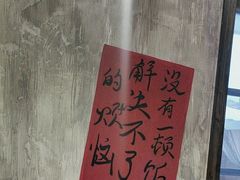 没有一顿饭
解决不了
的烦恼